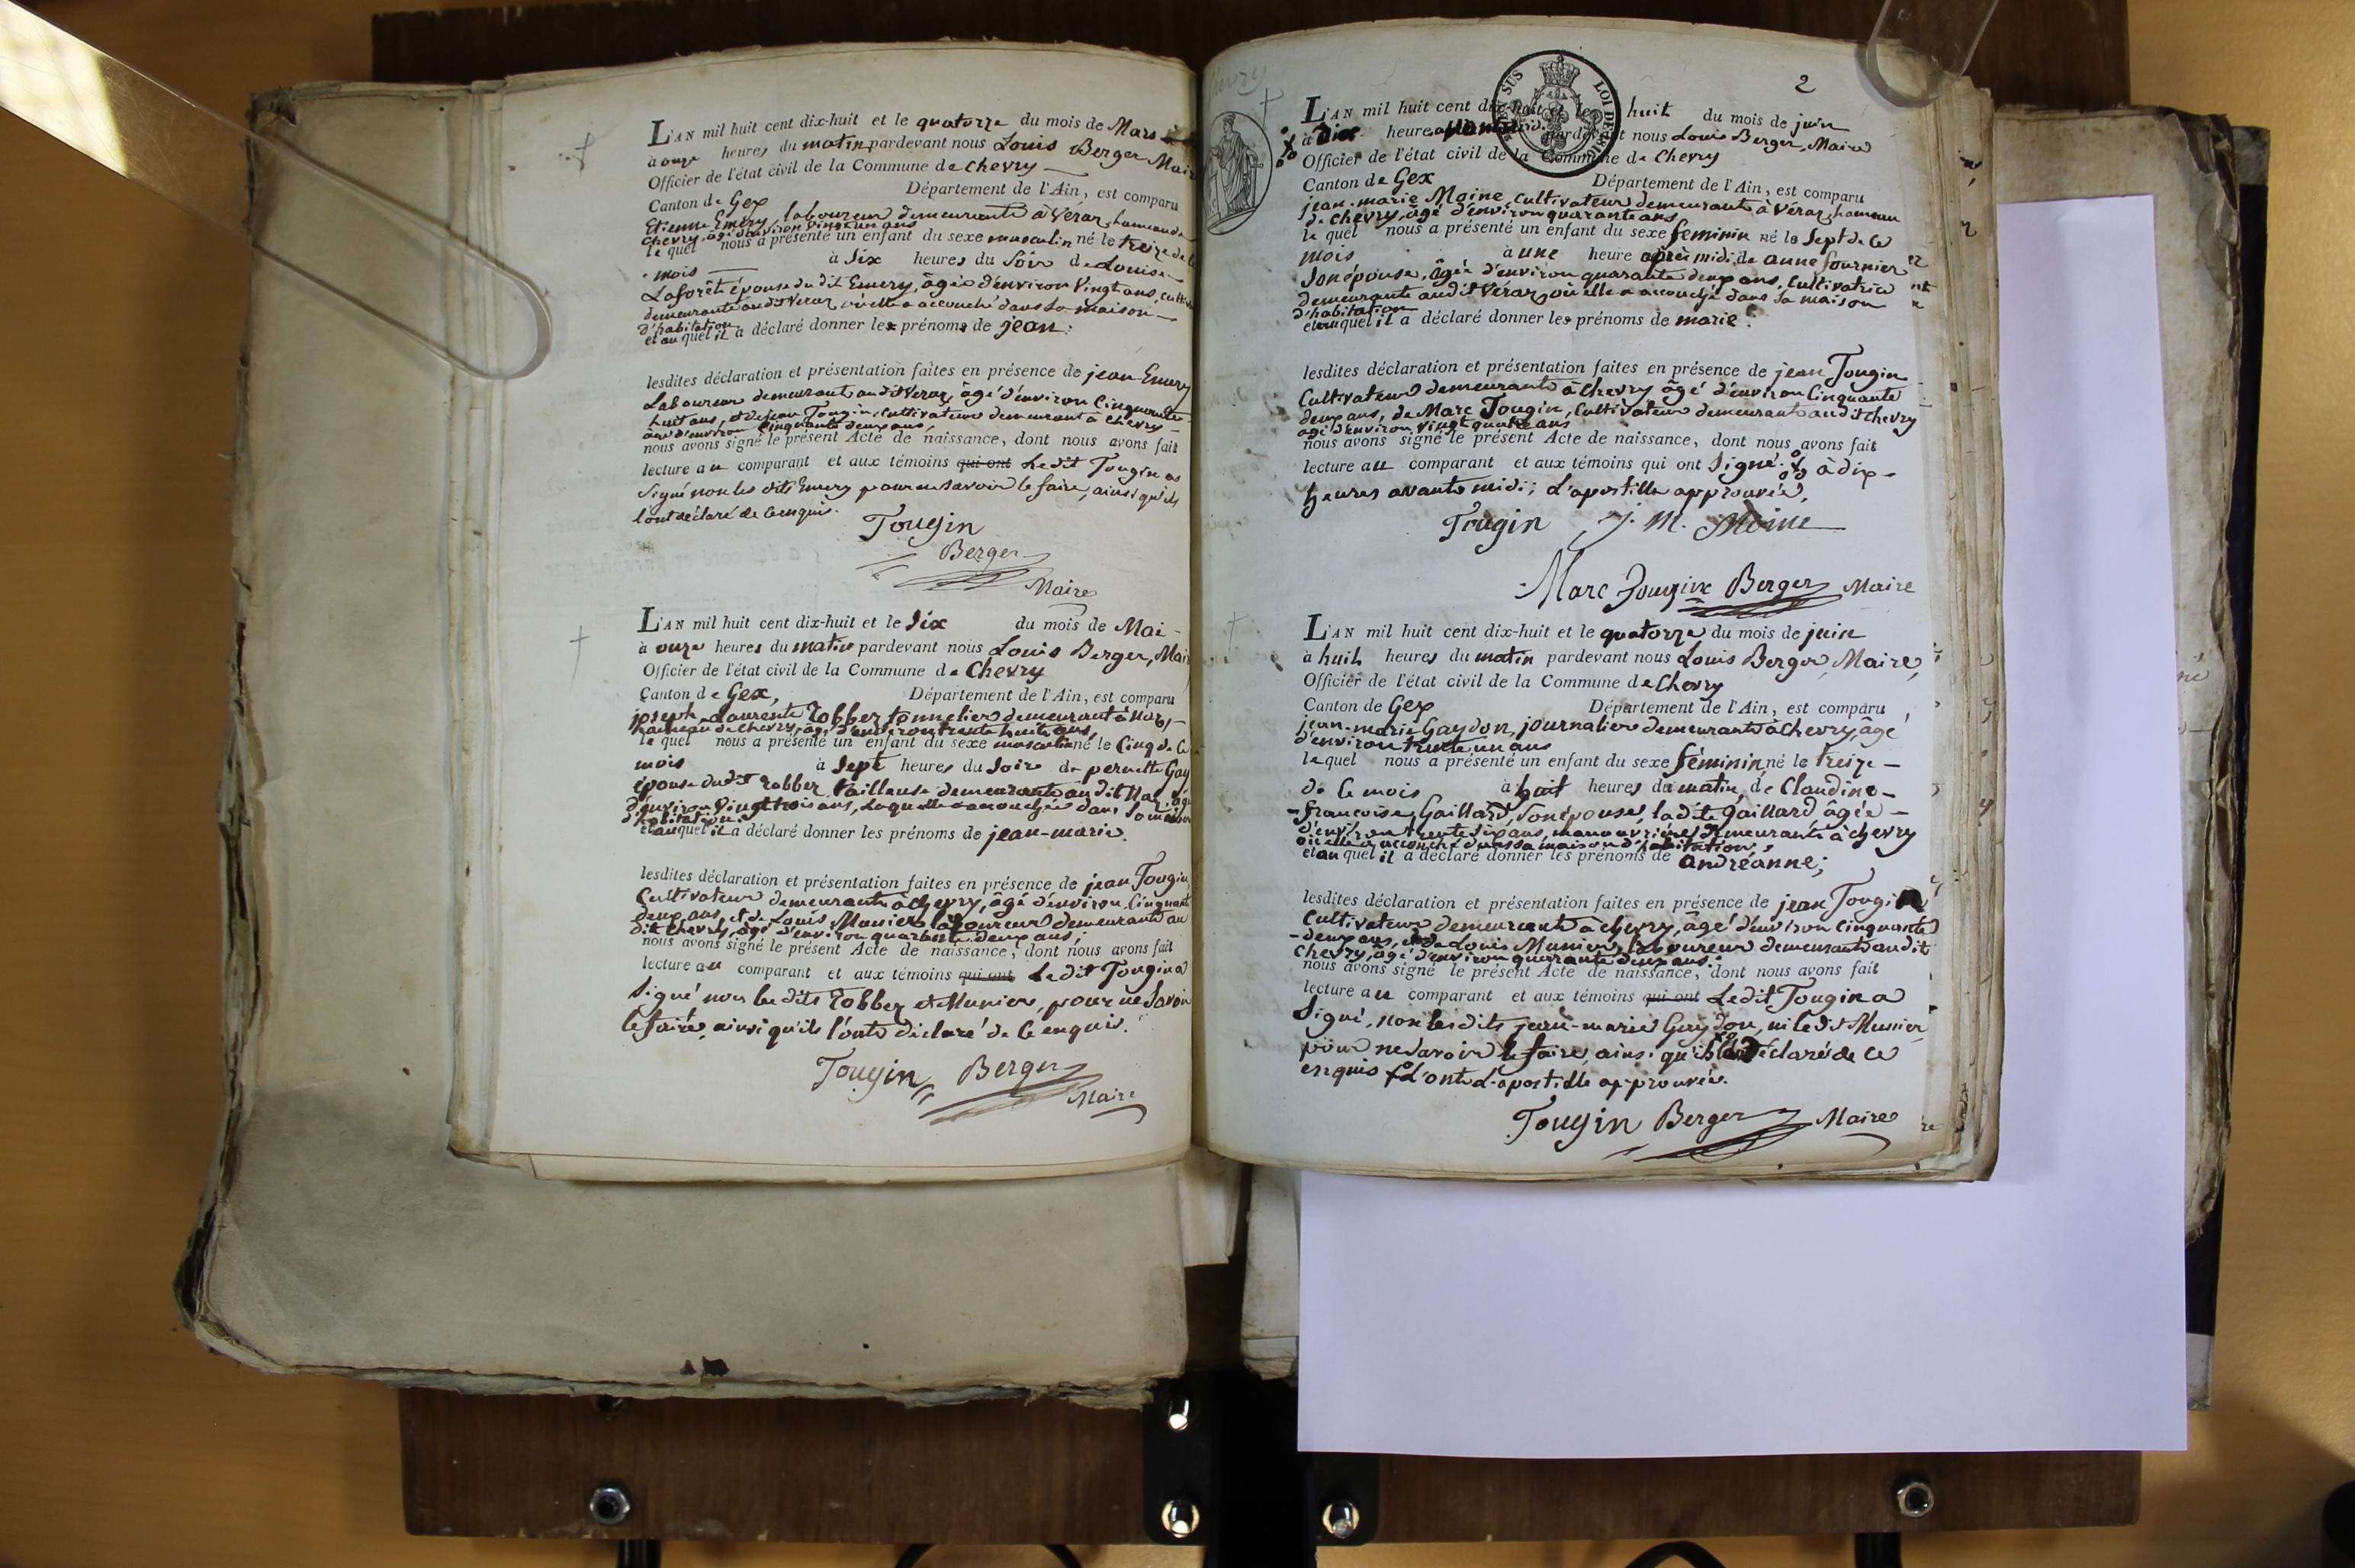 L'AN mil huit cent dix-huit et le quatorze du mois de Mars
à onze heures du matin pardevant nous Louis Berger Maire
Officier de l'état civil de la Commune de Chevry
Canton de Gex Département de l'Ain, est comparu
Etienne Emery, laboureur demeurante à Véraz, hameau de
Chevry, âgé d'environ vingt un ans
le quel nous a présenté un enfant du sexe masculin né le treize de
mois à Six heures du Soir de Louise
Laforêt épouse du dit Emery, âgée d'environ Vingt ans,
demeurante audit Veraz, où elle a accouché dans sa maison
d'habitation
et au quel il a déclaré donner les prénoms de jean.
lesdites déclaration et présentation faites en présence de jean Emery
Laboureur demeurante audit Veraz, âgé d'environ Cinquante
huit ans, et de jean Tougin, cultivateur demeurant à Chevry
âgé d'environ Cinquante deux ans,
nous avons signé le présent Acte de naissance, dont nous avons fait
lecture au comparant et aux témoins qui ont Ledit Tougin a
Signé non les dits Emery pour ne Savoir le faire, ainsi qu'ils
l'ont déclaré de Ce enquis.
Tougin
Berger
Maire
L'AN mil huit cent dix-huit et le Six du mois de Mai
à onze heures du matin pardevant nous Louis Berger, Mai
Officier de l'état civil de la Commune de Chevry
Canton de Gex, Département de l'Ain, est comparu
joseph Laurente Tobber tonnelier demeurant à Naz,
hameau de Chevry, âgé d'environ trente huit ans,
le quel nous a présenté un enfant du sexe masculin né le Cinq de Ce
mois à Sept heures du Soir de pernette Gay
épouse dudit Tobber, tailleuse demeurante au dit Naz, âgé
d'environ Vingt trois ans, laquelle a accouchée dans Sa maison
d'habitation.
et auquel il a déclaré donner les prénoms de jean-marie.
lesdites déclaration et présentation faites en présence de jean Tougin,
Cultivateur demeurante à Chevry, âgé d'environ Cinquant
deux ans, et de Louis Munier laboureur demeurante au
dit Chevry, âgé d'environ quarante deux ans;
nous avons signé le présent Acte de naissance, dont nous avons fait
lecture au comparant et aux témoins qui ont Ledit Tougin a
Signé non les dits Tobber et Munier, pour ne Savoir
le faire, ainsi qu'ils l'onte déclaré de Ce enquis.
Tougin Berger
Maire
2
LOI DE 1816
L'AN mil huit cent dix-huit et le huit du mois de juin
à dix heures pardevant nous Louis Berger, Maire
Officier de l'état civil de la Commune de Chevry
Canton de Gex Département de l'Ain, est comparu
jean-marie Moine, cultivateur demeurante à Véraz, hameau
de Chevry, âgé d'environ quarante ans
le quel nous a présenté un enfant du sexe féminin né le Sept de Ce
mois à une heure après midi de anne fournier
Son épouse, âgée d'environ quarante deux ans, Cultivatrice
demeurante audit Véraz, où elle a accouché dans Sa maison
d'habitation
et auquel il a déclaré donner les prénoms de marie.
lesdites déclaration et présentation faites en présence de jean Tougin
Cultivateur demeurante à Chevry âgé d'environ Cinquante
deux ans, de Marc Tougin, Cultivateur demeurante audit Chevry
âgé d'environ Vingt quatre ans
nous avons signé le présent Acte de naissance, dont nous avons fait
lecture au comparant et aux témoins qui ont Signé. à dix
heures avante midi; L'apostille approuvée.
Tougin J. M. Moine
Marc Tougin Berger Maire
L'AN mil huit cent dix-huit et le quatorze du mois de juin
à huit heures du matin pardevant nous Louis Berger, Maire,
Officier de l'état civil de la Commune de Chevry
Canton de Gex Département de l'Ain, est comparu
jean-marie Gaydon, journalier demeurante à Chevry, âgé
d'environ trente un ans
lequel nous a présenté un enfant du sexe féminin, né le treize
de Ce mois à huit heures du matin, de Claudine
françoise Gaillard, Son épouse, ladite Gaillard âgée
d'environ trente Six ans, manouvrière, demeurante à Chevry
où elle a accouché dans sa maison d'habitation,
et au quel il a déclaré donner les prénoms de andréanne;
lesdites déclaration et présentation faites en présence de jean Tougin
Cultivateur demeurante à Chevry, âgé d'environ Cinquante
deux ans, et de Louis Munier, laboureur demeurante audit
Chevry, âgé d'environ quarante deux ans.
nous avons signé le présent Acte de naissance, dont nous avons fait
lecture au comparant et aux témoins qui ont Ledit Tougin a
Signé, non les dits jean-marie Gaydon, ni le dit Munier
pour ne Savoir le faire, ainsi qu'ils déclaré de Ce
enquis L'ont L'apostille approuvée.
Tougin Berger Maire